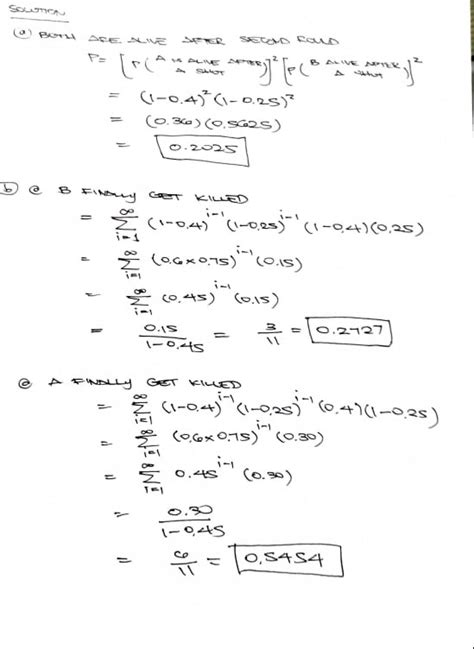 SOLUTION
(a) BOTH ARE ALIVE AFTER SECOND ROUND
P = [P(A IS ALIVE AFTER A SHOT)]² [P(B ALIVE AFTER A SHOT)]²
= (1-0.4)² (1-0.25)²
= (0.36)(0.5625)
= 0.2025
(b) @ B FINALLY GET KILLED
= ∞ Σ i=1 (1-0.4)^i-1 (1-0.25)^i-1 (1-0.4)(0.25)
= ∞ Σ i=1 (0.6×0.75)^i-1 (0.15)
= ∞ Σ i=1 (0.45)^i-1 (0.15)
= 0.15/1-0.45 = 3/11 = 0.2727
@ A FINALLY GET KILLED
= ∞ Σ i=1 (1-0.4)^i-1 (1-0.25)^i-1 (0.4)(1-0.25)
= ∞ Σ i=1 (0.6×0.75)^i-1 (0.30)
= ∞ Σ i=1 0.45^i-1 (0.30)
= 0.30/1-0.45
= 6/11 = 0.5454